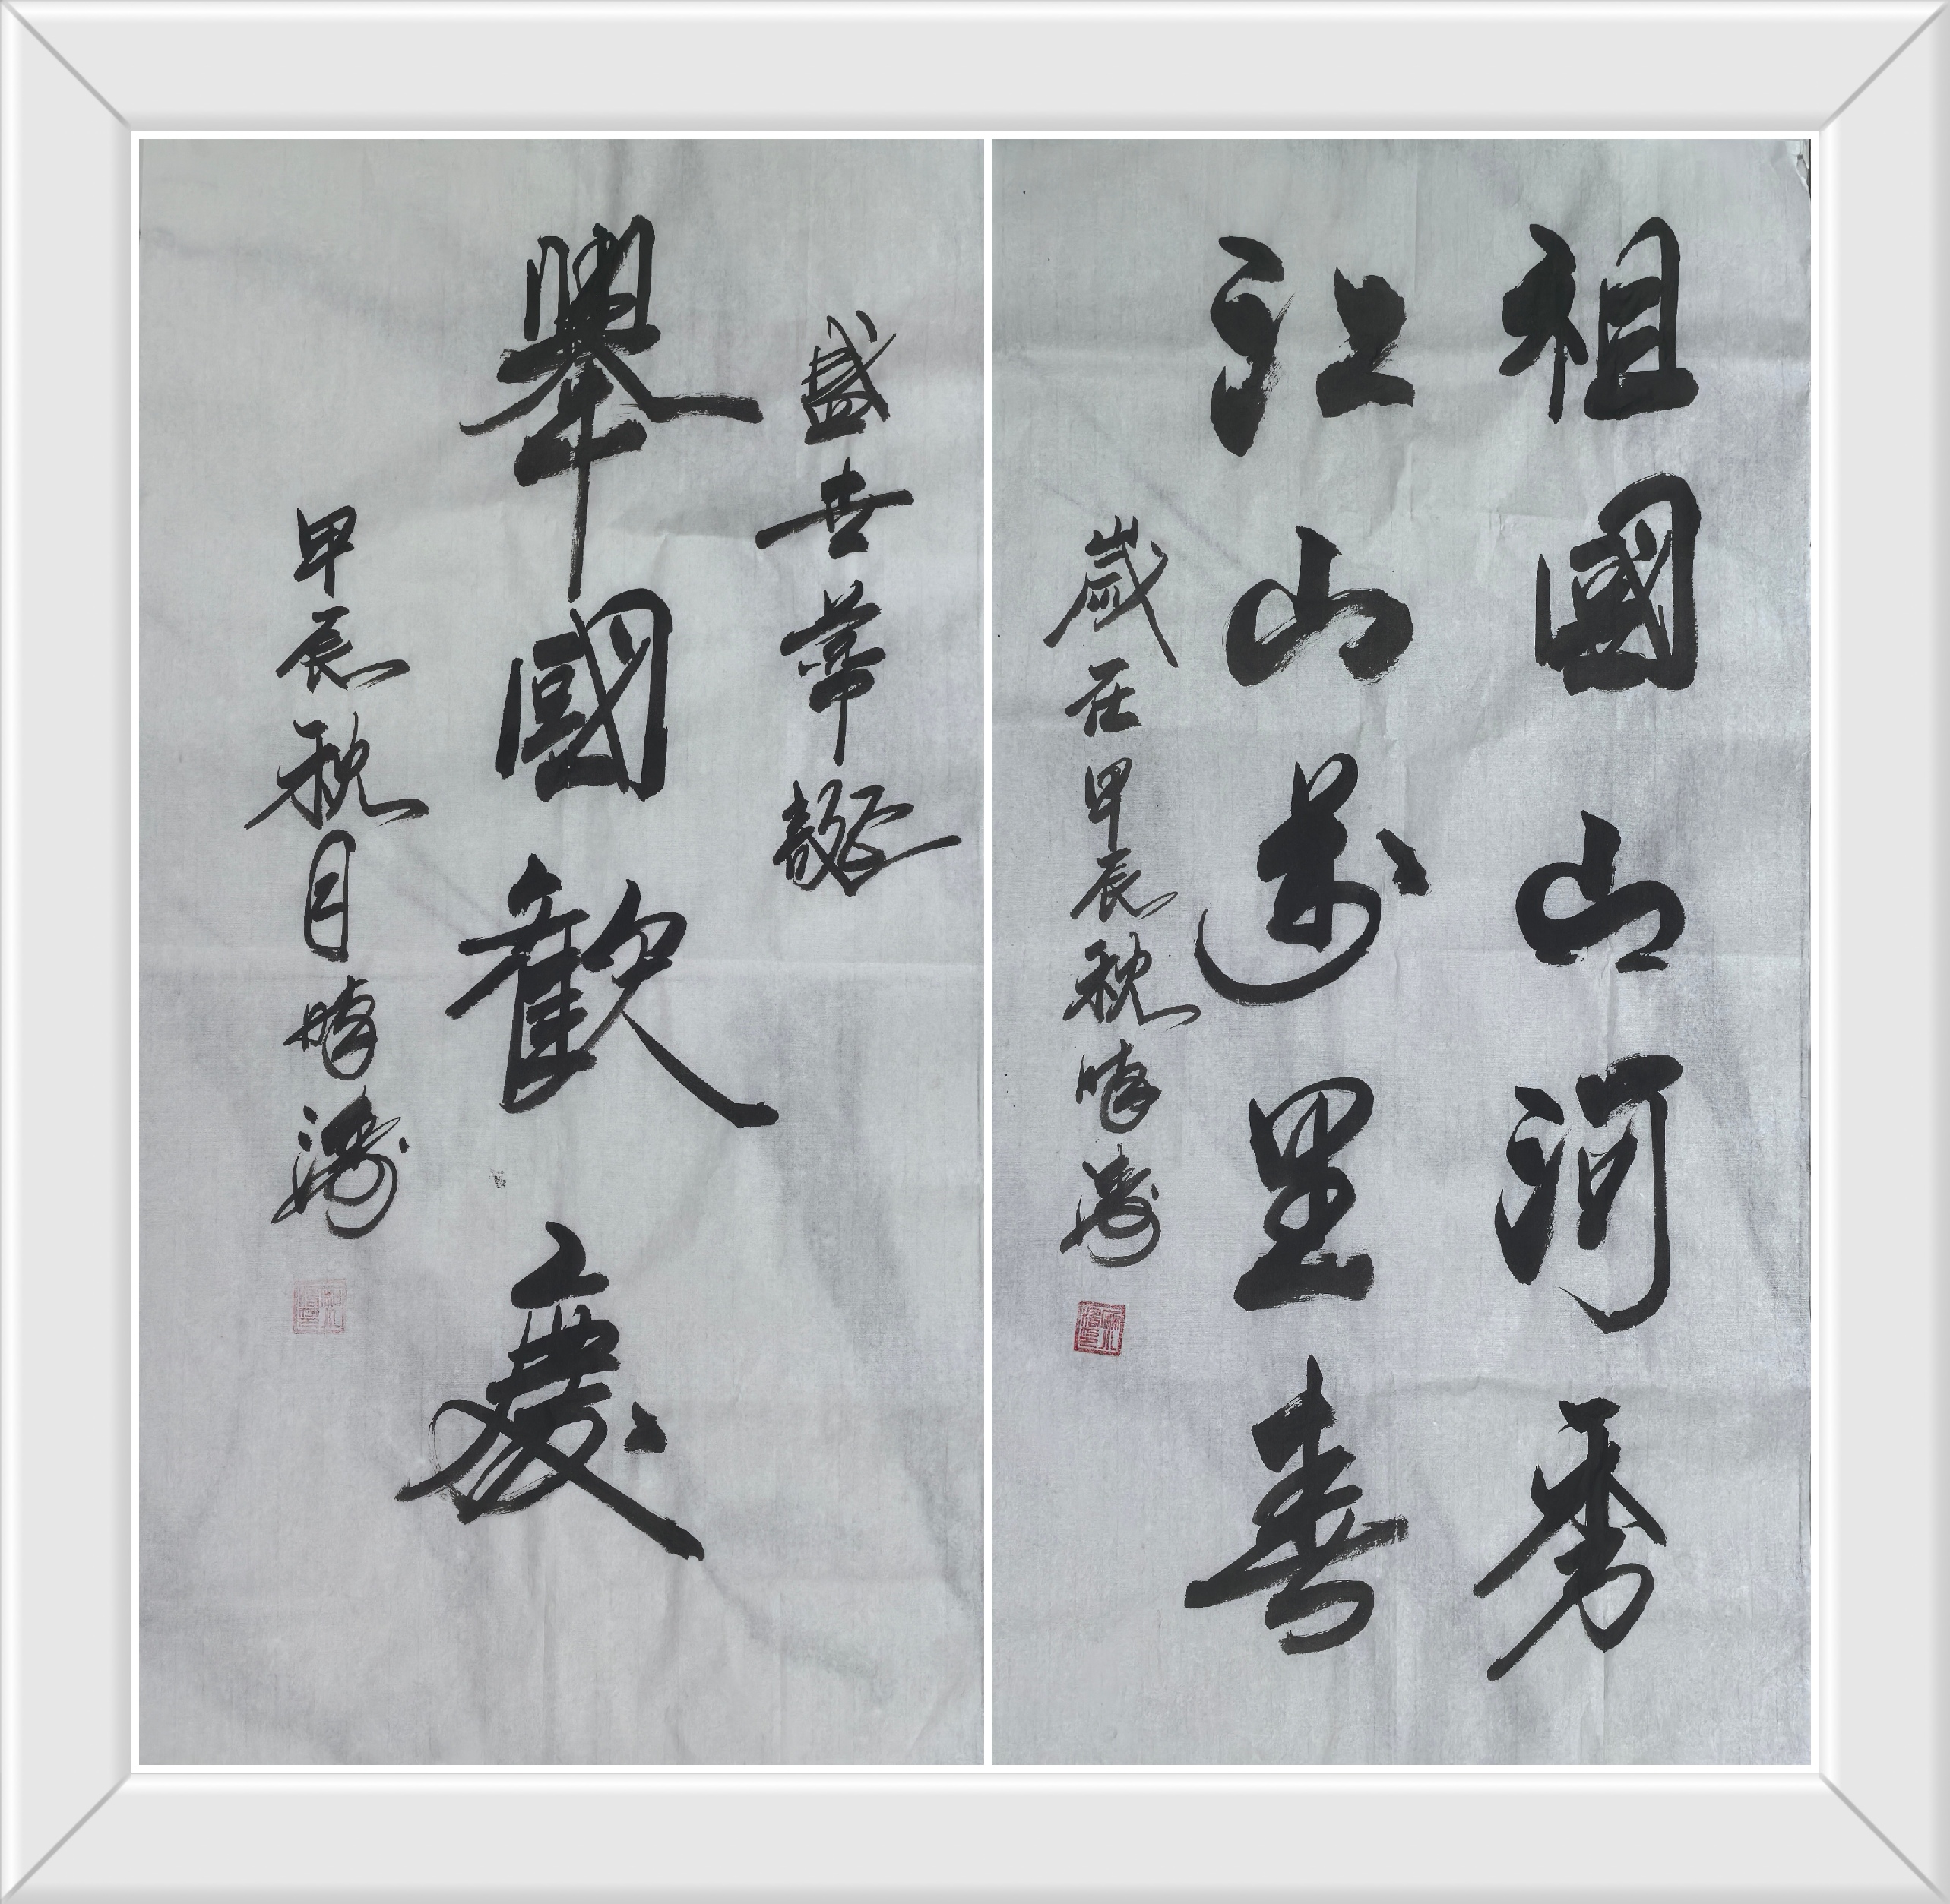 祖國山河秀
江山万里春
歲在甲辰秋曉濤
盛世華誕
舉國歡慶
甲辰秋月曉濤